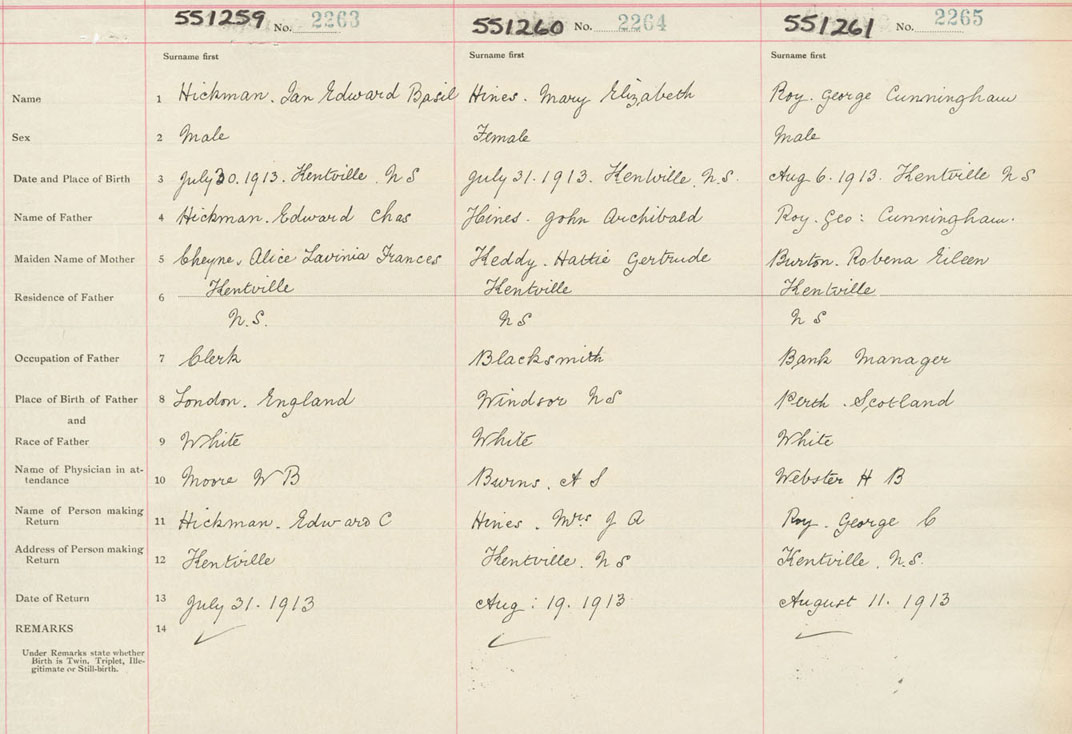 551259 No. 2263 551260 No. 2264 551261 No. 2265
Surname first Surname first Surname first
Name 1 Hickman. Ian Edward Basil Hines. Mary Elizabeth Roy. George Cunningham
Sex 2 Male Female Male
Date and Place of Birth 3 July 30. 1913. Kentville. N S July 31. 1913. Kentville. N.S. Aug 6. 1913. Kentville N S
Name of Father 4 Hickman. Edward Chas Hines. John Archibald Roy. Geo: Cunningham.
Maiden Name of Mother 5 Cheyne. Alice Lavinia Frances Keddy. Hattie Gertrude Burton. Robena Eileen
Residence of Father 6 Kentville Kentville Kentville
N.S. N S N S
Occupation of Father 7 Clerk Blacksmith Bank Manager
Place of Birth of Father 8 London. England Windsor N S Perth. Scotland
and
Race of Father 9 White White White
Name of Physician in at-
tendance 10 Moore W B Burns. A S Webster H B
Name of Person making
Return 11 Hickman. Edward C Hines. Mrs J A Roy. George C
Address of Person making
Return 12 Kentville Kentville. N S Kentville. N.S.
Date of Return 13 July 31. 1913 Aug: 19. 1913 August 11. 1913
REMARKS 14
Under Remarks state whether
Birth is Twin, Triplet, Ille-
gitimate or Still-birth.